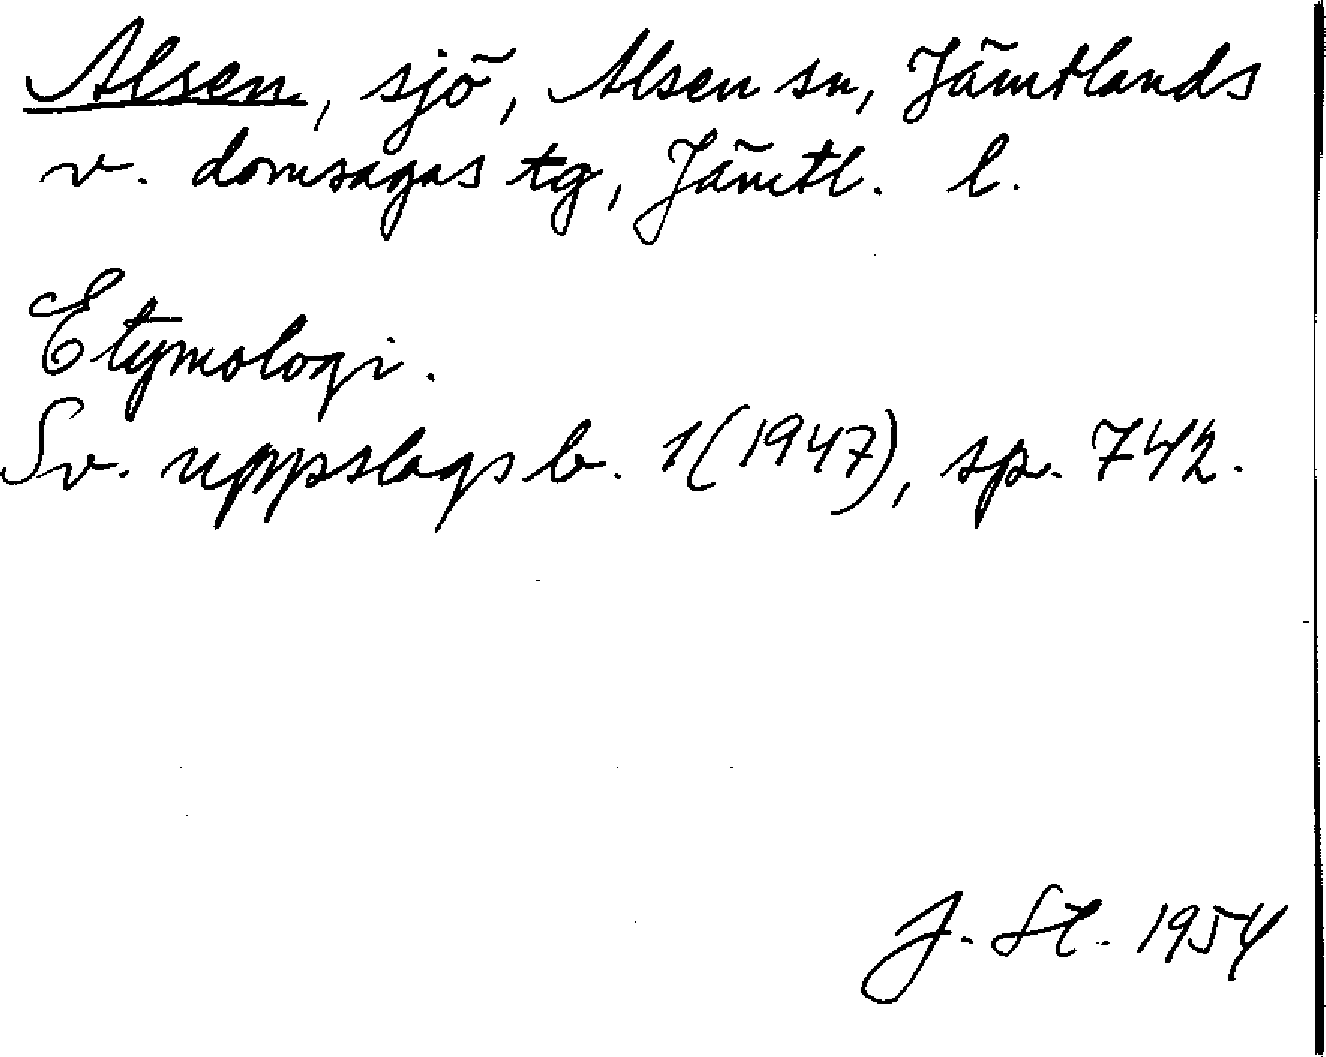 Alsen, sjö, Alsen sn, Jämtlands
v. domsagas tg, Jämtl. l.
Etymologi.
Sv. uppslagsb. 1(1947), sp. 742.
J. St. 1954